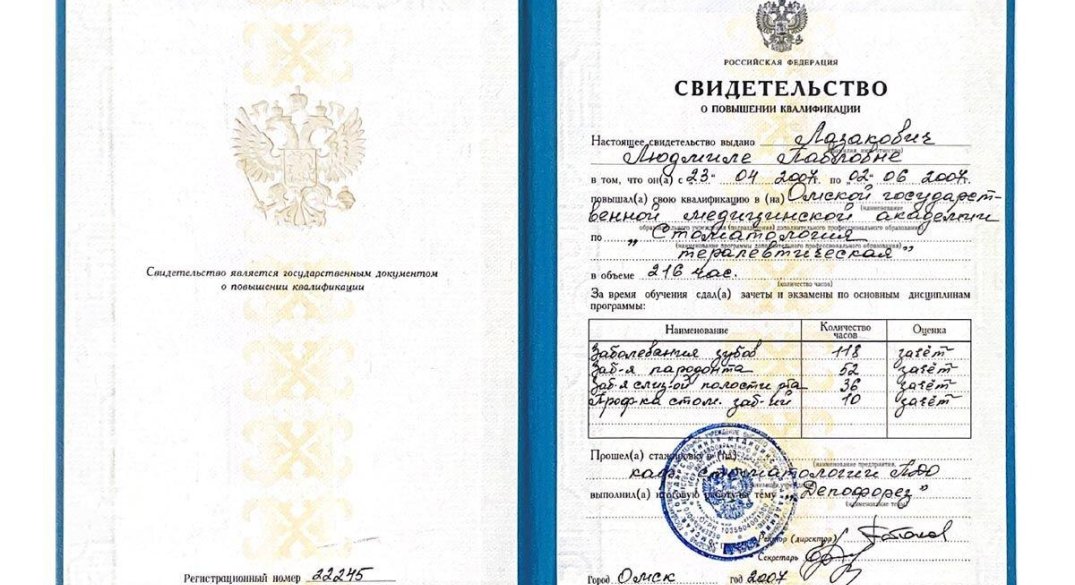 Свидетельство является государственным документом
о повышении квалификации
Регистрационный номер 22245
РОССИЙСКАЯ ФЕДЕРАЦИЯ
СВИДЕТЕЛЬСТВО
О ПОВЫШЕНИИ КВАЛИФИКАЦИИ
Настоящее свидетельство выдано Лазакович
Людмиле Павловне
в том, что он(а) с "23" 04 2007г. по "02" 06 2007г.
повышал(а) свою квалификацию в (на) Омской государст-
(наименование
венной медицинской академии
образовательного учреждения (подразделения) дополнительного профессионального образования)
по „Стоматология
(наименование программы дополнительного профессионального образования)
терапевтическая"
в объеме 216 час.
(количество часов)
За время обучения сдал(а) зачеты и экзамены по основным дисциплинам
программы:
Наименование Количество часов Оценка
Заболевания зубов 118 зачёт
Заб-я пародонта 52 зачёт
Заб-я слиз-ой полости рта 36 зачёт
Проф-ка стом. заб-ий 10 зачёт
Прошел(а) стажировку в (на)
(наименование предприятия,
каф. стоматологии ПДО
выполнил(а) итоговую работу на тему „Депофорез"
(наименование темы)
Ректор (директор)
Секретарь
Город Омск год 2007